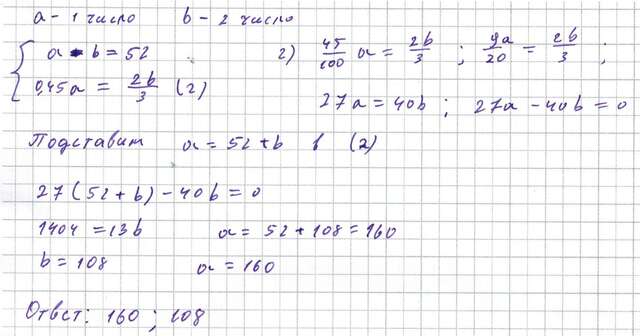 a - 1 число b - 2 число
a - b = 52
0,45a = 2b/3 (2)
2) 45/100 a = 2b/3 ; 9a/20 = 2b/3 ;
27a = 40b ; 27a - 40b = 0
Подставим a = 52 + b в (2)
27(52 + b) - 40b = 0
1404 = 13b a = 52 + 108 = 160
b = 108 a = 160
Ответ: 160 ; 108